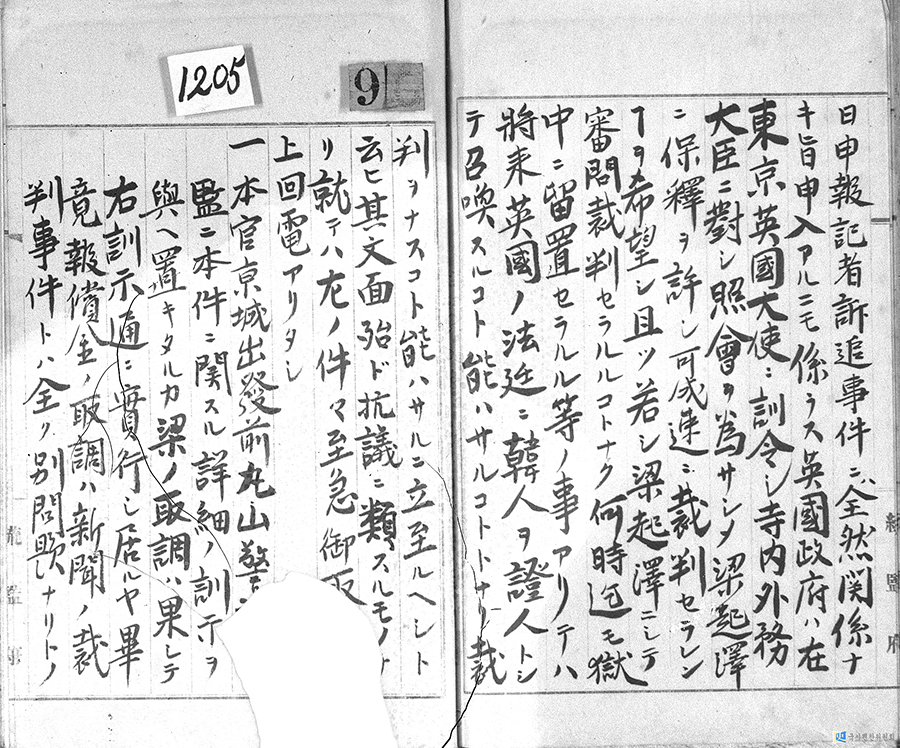 日申報記者訴追事件ニ全然関係ナ
キ旨申入アルニモ係ラス英國政府ハ在
東京英國大使ニ訓令シ寺内外務
大臣ニ對シ照會ヲ為サシメ梁起澤
ニ保釋ヲ許シ可成速ニ裁判セラレン
ヿヲ希望シ且ツ若シ梁起澤ニシテ
審問裁判セラルルコトナク何時迄モ獄
中ニ留置セラルル等ノ事アリテハ
將来英國ノ法廷ニ韓人ヲ證人トシ
テ召喚スルコト能ハサルコトトナリ裁
判ヲナスコト能ハサルニ立至ルヘシト
云ヒ其文面殆ド抗議ニ類スルモノナ
リ就テハ左ノ件々至急御取
上回電アリタシ
一本官京城出發前丸山警
監ニ本件ニ関スル詳細ノ訓示ヲ
與ヘ置キタルカ梁ノ取調ハ果シテ
右訓示通ニ實行シ居ルヤ畢
竟報償金ノ取調ハ新聞ノ裁
判事件トハ全ク別問題ナリトノ
1205
9
統監府
국사편찬위원회